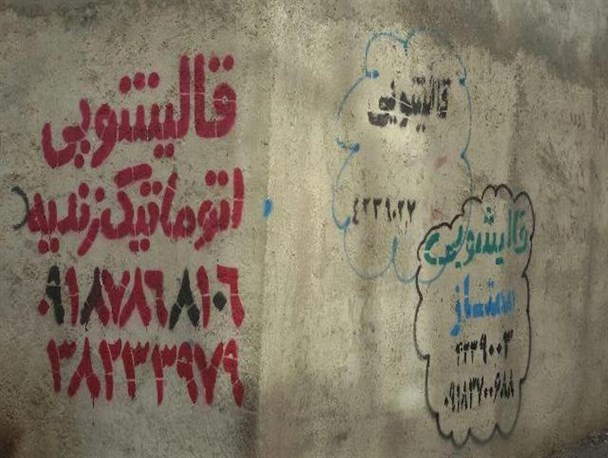 قالیشویی
اتوماتیک زندیه
۰۹۱۸۷۸۶۸۱۰۶
۳۸۲۳۳۹۷۹
قالیشویی
۴۲۳۹۰۲۷
قالیشویی
ممتاز
۴۲۳۹۰۰۳
۰۹۱۸۳۷۰۰۶۸۸